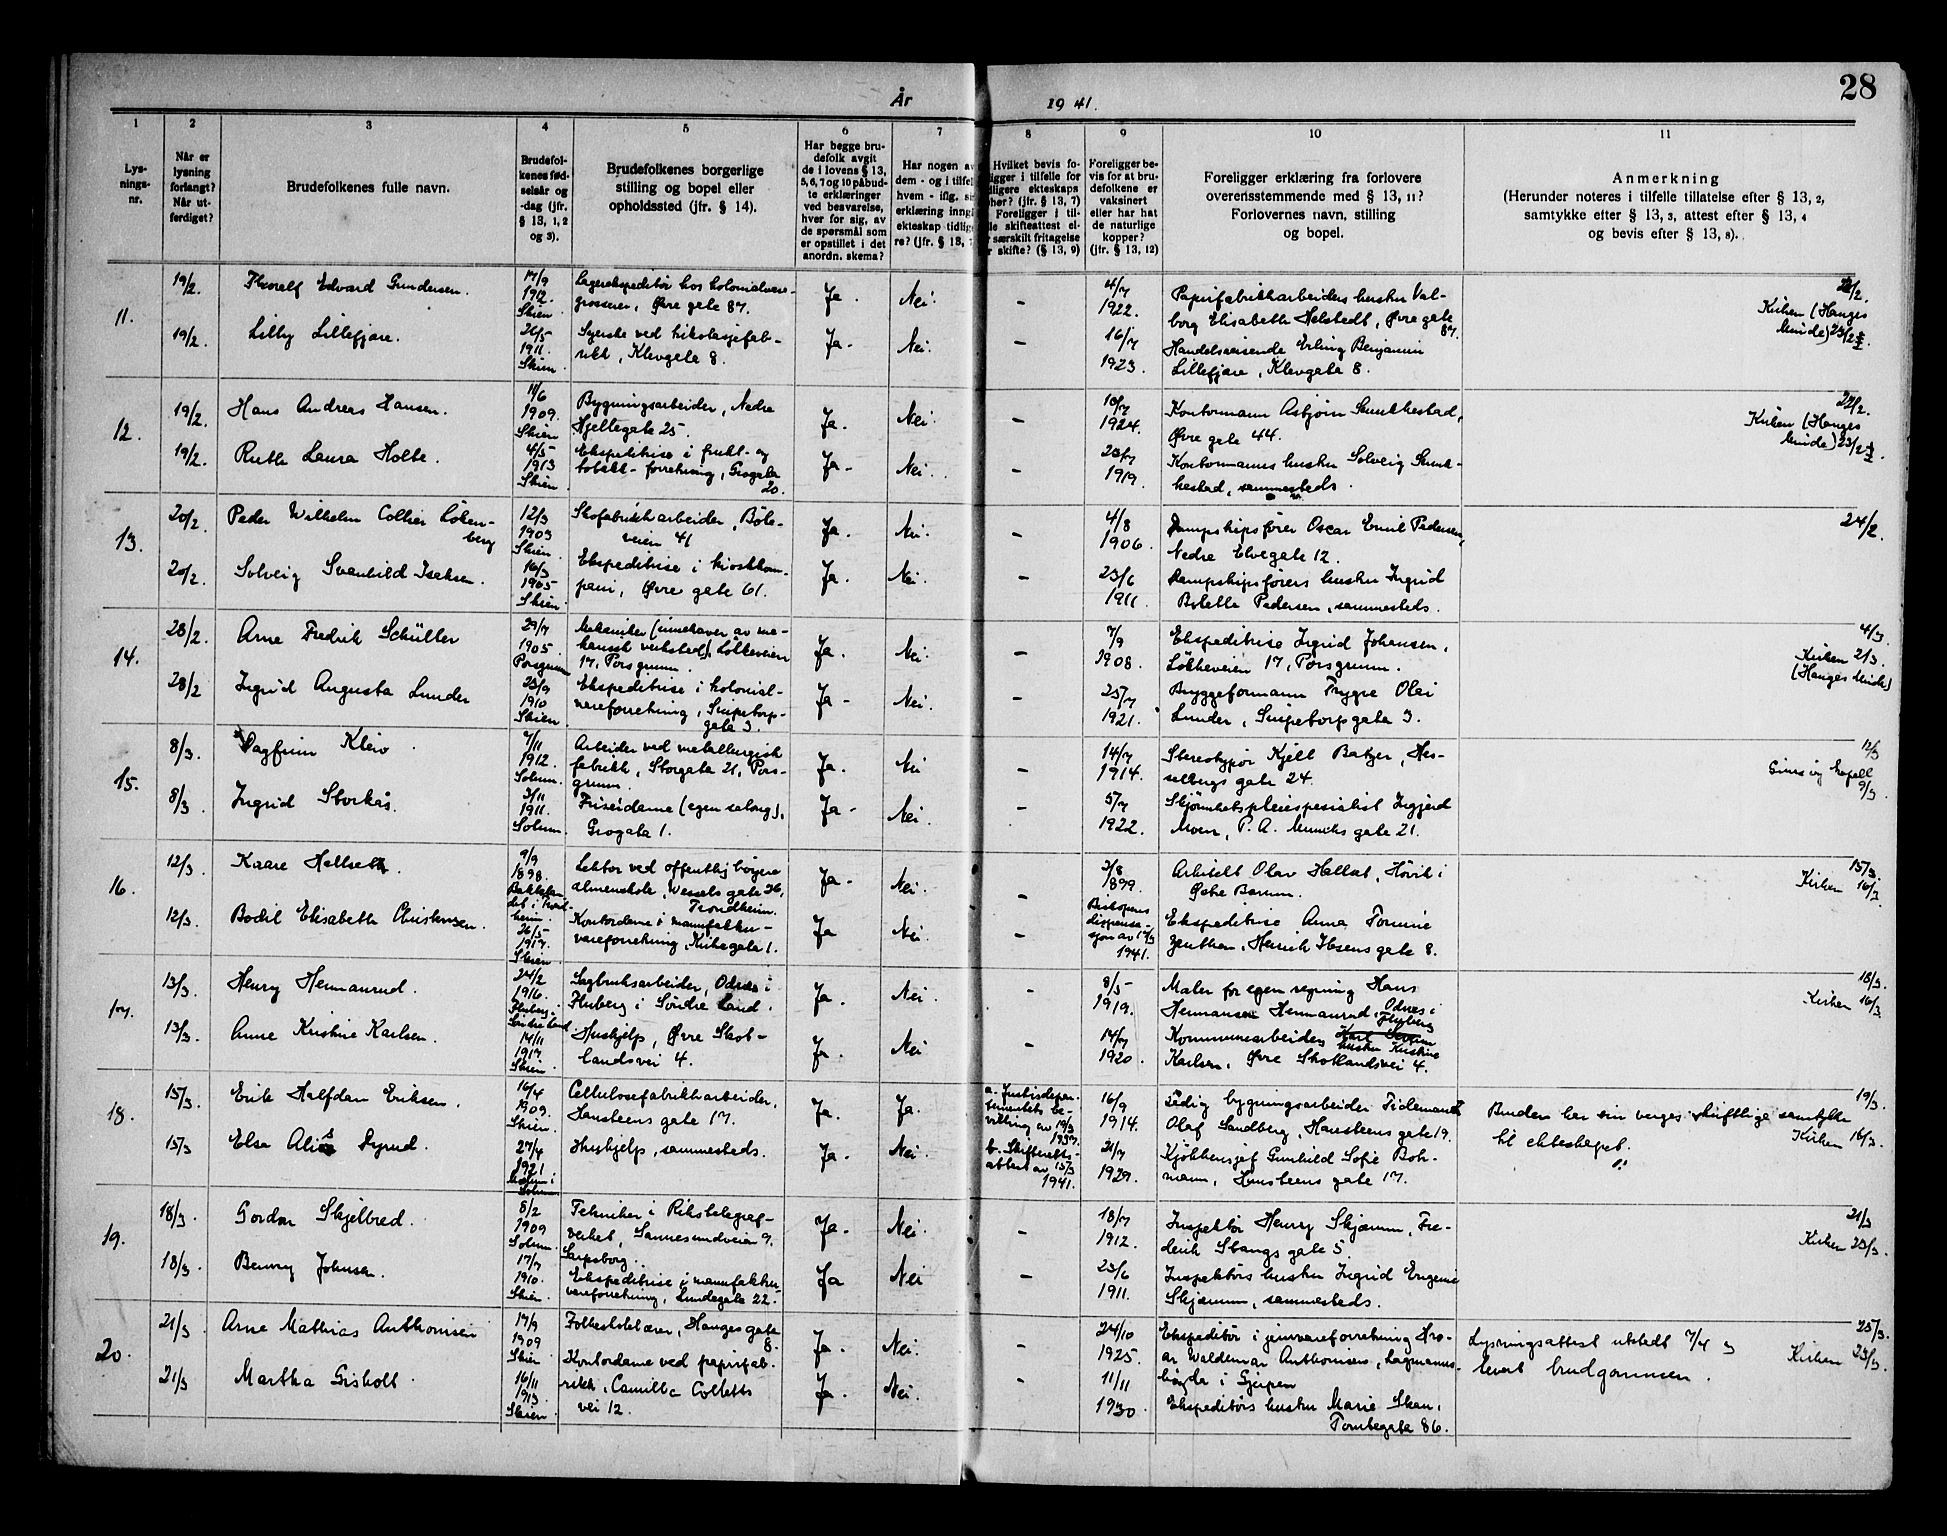 28
År 1941.
1 2 3 4 5 6 7 8 9 10 11
Lys-
nings-
nr.
Når er
lysning
forlangt?
Når ut-
ferdiget?
Brudefolkenes fulle navn.
Brudefol-
kenes fød-
selsår og
-dag (jfr.
§ 13, 1, 2
og 3).
Brudefolkenes borgerlige
stilling og bopel eller
opholdssted (jfr. § 14).
Har begge bru-
defolk avgit
de i lovens § 13,
5, 6, 7 og 10 påbud-
te erklæringer
ved besvarelse,
hver for sig, av
de spørsmål som
er opstillet i det
anordn. skema?
Har nogen av
dem - og i tilfel
hvem - iflg. si
erklæring inng
ekteskap tidlig
re? (jfr. § 13, 7
Hvilket bevis fo-
ligger i tilfelle for
dligere ekteskaps
her? (jfr. § 13, 7)
Foreligger i til-
lle skifteattest el-
r særskilt fritagelse
r skifte? (§ 13, 9)
Foreligger be-
vis for at bru-
defolkene er
vaksinert
eller har hat
de naturlige
kopper?
(jfr. § 13, 12)
Foreligger erklæring fra forlovere
overensstemmende med § 13, 11?
Forlovernes navn, stilling
og bopel.
Anmerkning
(Herunder noteres i tilfelle tillatelse efter § 13, 2,
samtykke efter § 13, 3, attest efter § 13, 4
og bevis efter § 13, 8).
11.
19/2. Thoralf Edvard Gundersen.
17/9
1912.
Skien
Lagerekspeditør hos kolonialvare-
grosserer, Øvre gate 87.
Ja. Nei. –
4/7
1922.
Papirfabrikkarbeiders hustru Val-
borg Elisabeth Helstedt, Øvre gate
87.
Kirken (Hauges
Minde) 23/2
19/2. Lilly Lillefjære.
26/5
1911.
Skien
Syerske ved trikotasjefab-
rikk, Klevgata 8.
Ja. Nei. –
16/7
1923.
Handelsreisende Erling Benjamin
Lillefjære, Klevgata 8.
12.
19/2. Hans Andreas Hansen.
11/6
1909.
Skien
Bygningsarbeider, Nedre
Hjellegate 25.
Ja. Nei. –
10/7
1924.
Kontormann Asbjørn
Øvre gate 44.
22/2.
Kirken (Hauges
Minde) 23/2
19/2. Ruth Laura Holte.
4/5
1913
Skien
Ekspeditrise i frukt- og
tobakk-forretning, Grogata
20.
Ja. Nei. –
23/7
1919.
Kontormanns hustru Solveig
sammesteds.
13.
20/2. Peder Wilhelm Collier Løken-
berg
12/3
1903
Skien.
Skofabrikkarbeider, Bøle-
veien 41
Ja. Nei. –
4/8
1906.
Dampskipsfører Oscar Emil Pedersen,
Nedre Elvegate 12.
24/2.
20/2. Solveig Svanhild Isaksen.
16/3
1905
Skien.
Ekspeditrise i kioskkom-
pani, Øvre gate 61.
Ja. Nei. –
23/6
1911.
Dampskipsførers hustru Ingrid
Pedersen, sammesteds.
14.
28/2. Arne Fredrik Schüller
29/7
1905.
Porsgrunn
Mekaniker (innehaver av me-
kanisk verksted), Løkkeveien
17, Porsgrunn.
Ja. Nei. –
7/9
1908.
Ekspeditrise Ingrid Johansen,
Løkkeveien 17, Porsgrunn.
4/3.
Kirken 2/3.
(Hauges Minde)
28/2 Ingrid Augusta Lunder
23/9
1910
Skien
Ekspeditrise i kolonial-
vareforretning, Snipetorp-
gate 3.
Ja. Nei. –
25/7
1921.
Bryggeformann Trygve Olai
Lunder, Snipetorpgate 3.
15.
8/3. Dagfinn Kleiv.
7/11
1912.
Solum.
Arbeider ved metallurgisk
fabrikk, Storgata 21, Pors-
grunn.
Ja. Nei –
14/7
1914.
Stereotypør Kjell Batzer, Hes-
selbergs gate 24.
12/3
kapell
9/3.
8/3. Ingrid Storkås.
3/11
1911.
Solum.
Friserdame (egen salong),
Grogata 1.
Ja. Nei. –
5/7
1922.
Skjønnhetspleiespesialist Ingjerd
Moen, P. A. Munchs gate 21.
16.
12/3. Kaare Hellseth.
9/9
1898.
i Trond-
heim.
Lektor ved offentlig høyere
almenskole, Wessels gate 26,
Trondheim.
Ja. Nei. –
3/8
1899.
Arkitekt Olav Hellset, Høvik i
Østre Bærum.
15/3.
Kirken 16/3.
12/3. Bodil Elisabeth Christensen.
26/5
1917.
Skien.
Kontordame i manufaktur-
vareforretning, Kirkegata 1.
Ja Nei. –
Biskopens
dispensa-
sjon av 12/3
1941.
Ekspeditrise Anna
Henrik Ibsens gate 8.
17.
13/3. Henry Hermanrud.
24/2
1916.
Fluberg i
Søndre Land
Sagbruksarbeider, Odnes i
Fluberg i Søndre Land.
Ja. Nei. –
8/5
1919.
Maler for egen regning Hans
Hermansen Hermanrud, Odnes i
Fluberg
18/3.
Kirken 16/3.
13/3. Anne Kristine Karlsen.
14/11
1917
Skien.
Hushjelp, Øvre Skot-
landsvei 4.
Ja. Nei –
14/7
1920.
Kommunearbeiders
hustru Kristine
Karlsen, Øvre Skotlandsvei 4.
18.
15/3. Erik Halfdan Eriksen.
16/4
1909.
Skien.
Cellulosefabrikkarbeider,
Hansteens gate 17.
Ja. Ja.
a. Justisdepar-
tementets be-
villing av 19/3
1937.
16/9
1914.
Ledig bygningsarbeider Tidemand
Olaf Sandberg, Hansteens gate 19.
Bruden har sin verges skriftlige samtykke
til ekteskapet.
19/3.
Kirken 16/3.
15/3 Else Alise
27/4
1921
i
Solum
Hushjelp, sammesteds.
Ja. Nei.
b. Skifteretts-
attest av 15/3
1941.
21/7
1929.
Kjøkkensjef Gunhild Sofie Boh-
mann, Hansteens gate 17.
19.
18/3. Gordon Skjelbred.
8/2
1909
Solum.
Tekniker i Rikstelegraf-
verket, Sannesundveien 9.
Sarpsborg.
Ja. Nei. –
18/7
1912.
Inspektør Henry Skjæmm, Fre-
derik Stangs gate 5.
21/3
Kirken 23/3.
18/3. Benny Johnsen.
17/7
1910.
Skien.
Ekspeditrise i manufaktur-
vareforretning, Lundegata 22.
Ja Nei –
23/6
1911.
Inspektørs hustru Ingrid Eugenie
Skjæmm, sammesteds.
20.
21/3 Arne Mathias Anthonisen
17/9
1909
Skien
Folkeskolelærer, Hauges gate
8.
Ja. Nei. –
24/10
1925.
Ekspeditør i jernvareforretning Hro-
ar Waldemar Anthonisen,
i Gjerpen
Lysningsattest utstedt 7/4 og
levert brudgommen.
25/3.
Kirken 23/3.
21/3 Martha Gisholt.
16/11
1913.
Skien.
Kontordame ved papirfab-
rikk, Camilla Colletts
vei 12.
Ja. Nei. –
11/11
1930.
Ekspeditørs hustru Marie Skau,
Tomtegata 86.